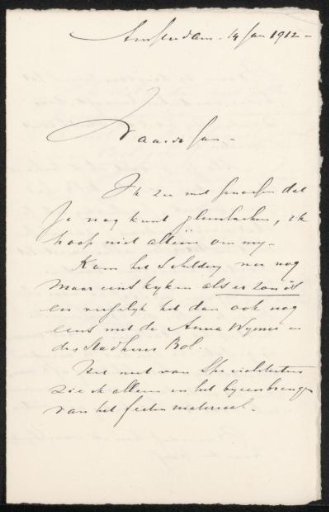 Amsterdam - 14 Jan 1912 -
Waarde Jan -
Ik zie met genoegen dat
Je nog kunt glimlachen, ik
hoop niet alleen om my.
Kom het Schildery nu nog
maar eens kyken als er zon is
en vergelyk het dan ook nog
eens met de Anna Wymer en
de Bol.
Het nut van Specialiteiten
zie ik alleen in het byeenbrengen
van het feiten materiaal.